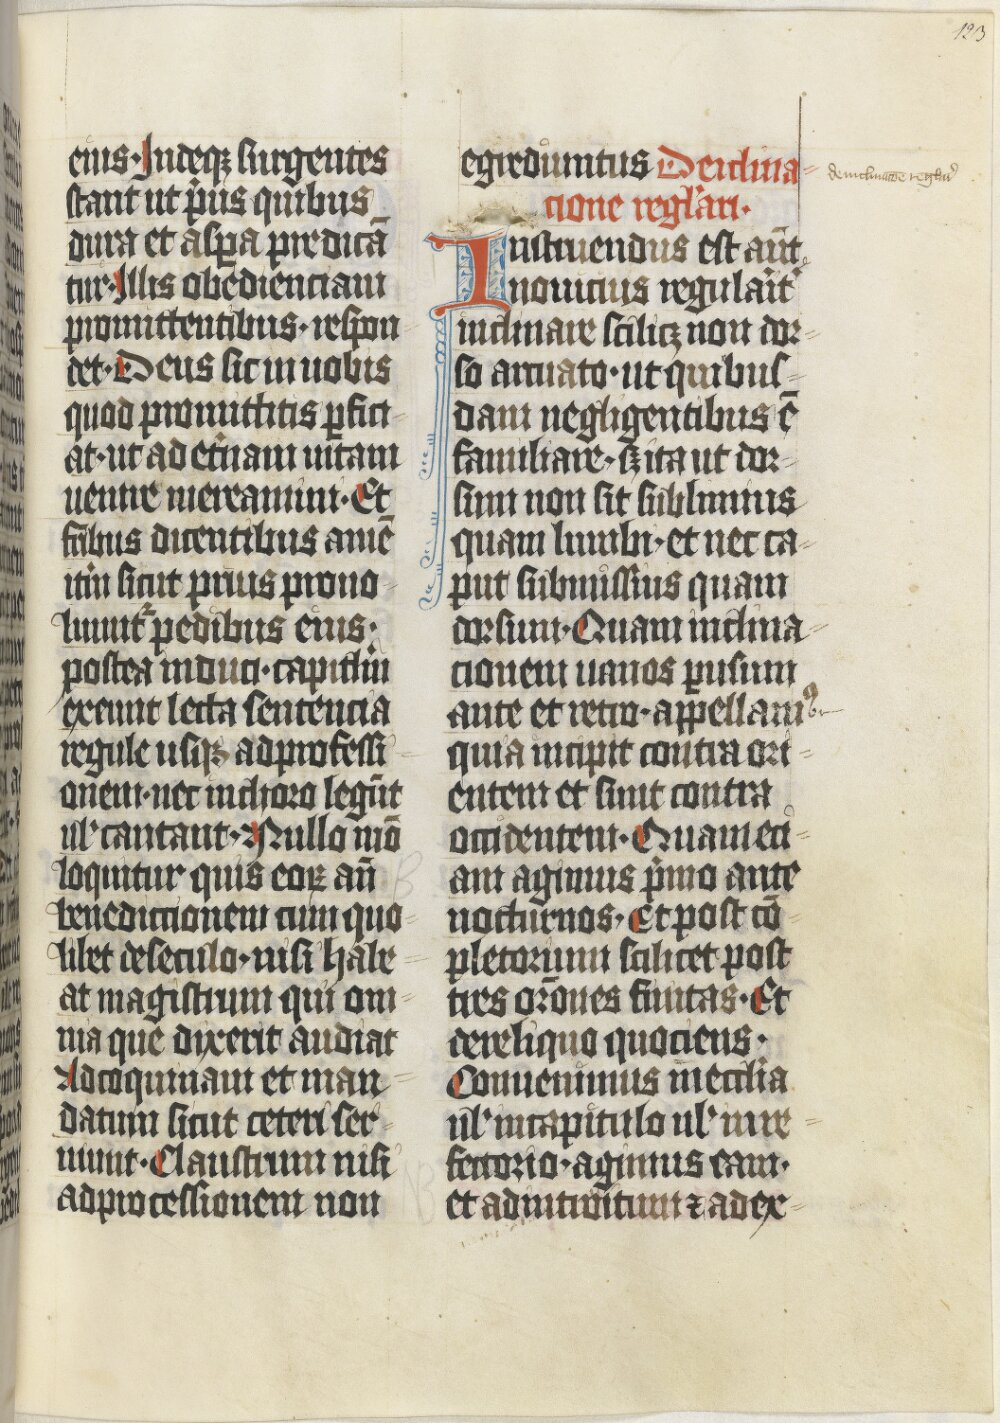 123
eius. Indeqꝫ surgentes
stant ut p̄us quibus
dura et asꝑa predicā
tur. Illis obedienciam
promittentibus. respon
det. Deus sic in uobis
quod promittitis ꝑfici
at. ut ad et̄nam uitam
uenire mereamini. Et
fr̄ibus dicentibus amē
itm̄ sicut prius prouo
luunt᷑ pedibus eius.
postea in duci. capitlm̄
exeunt lecta sentencia
regule usqꝫ ad professi
onem. nec in choro legūt
ul̓ cantant. Nullo mō
loquitur quis eoꝝ an̄
benedictionem cum quo
libet de seculo. nisi habe
at magistrum qui om
nia que dixerit audiat
Ad coquinam et man
datum sicut ceteri ser
uiunt. Claustrum nisi
ad processionem non
egrediuntus De iclina
cione reglari.
de inclinatōe regları
Instruendus est aūt
nouicius regularit̓
inclinare scilicꝫ non dor
so arcuato. ut quibus
dam negligentibus ē
familiare. sꝫ ita ut dor
sum non sit sublimius
quam lumbi. et nec ca
put submissius quam
dorsum. Quam inclina
cionem uanos pusum
ante et retro. appellamꝰ
quia incipit contra ori
entem et sinit contra
occidentem. Quam eci
am agimus p̄mo ante
nocturnos. Et post cō
pletorium scilicet post
tres or̄ones finitas. Et
de reliquo quociens.
Conuenimus in ecclia
ul̓ in capitulo ul̓ in re
fectorio. agimus eam.
et ad introitum ⁊ ad ex